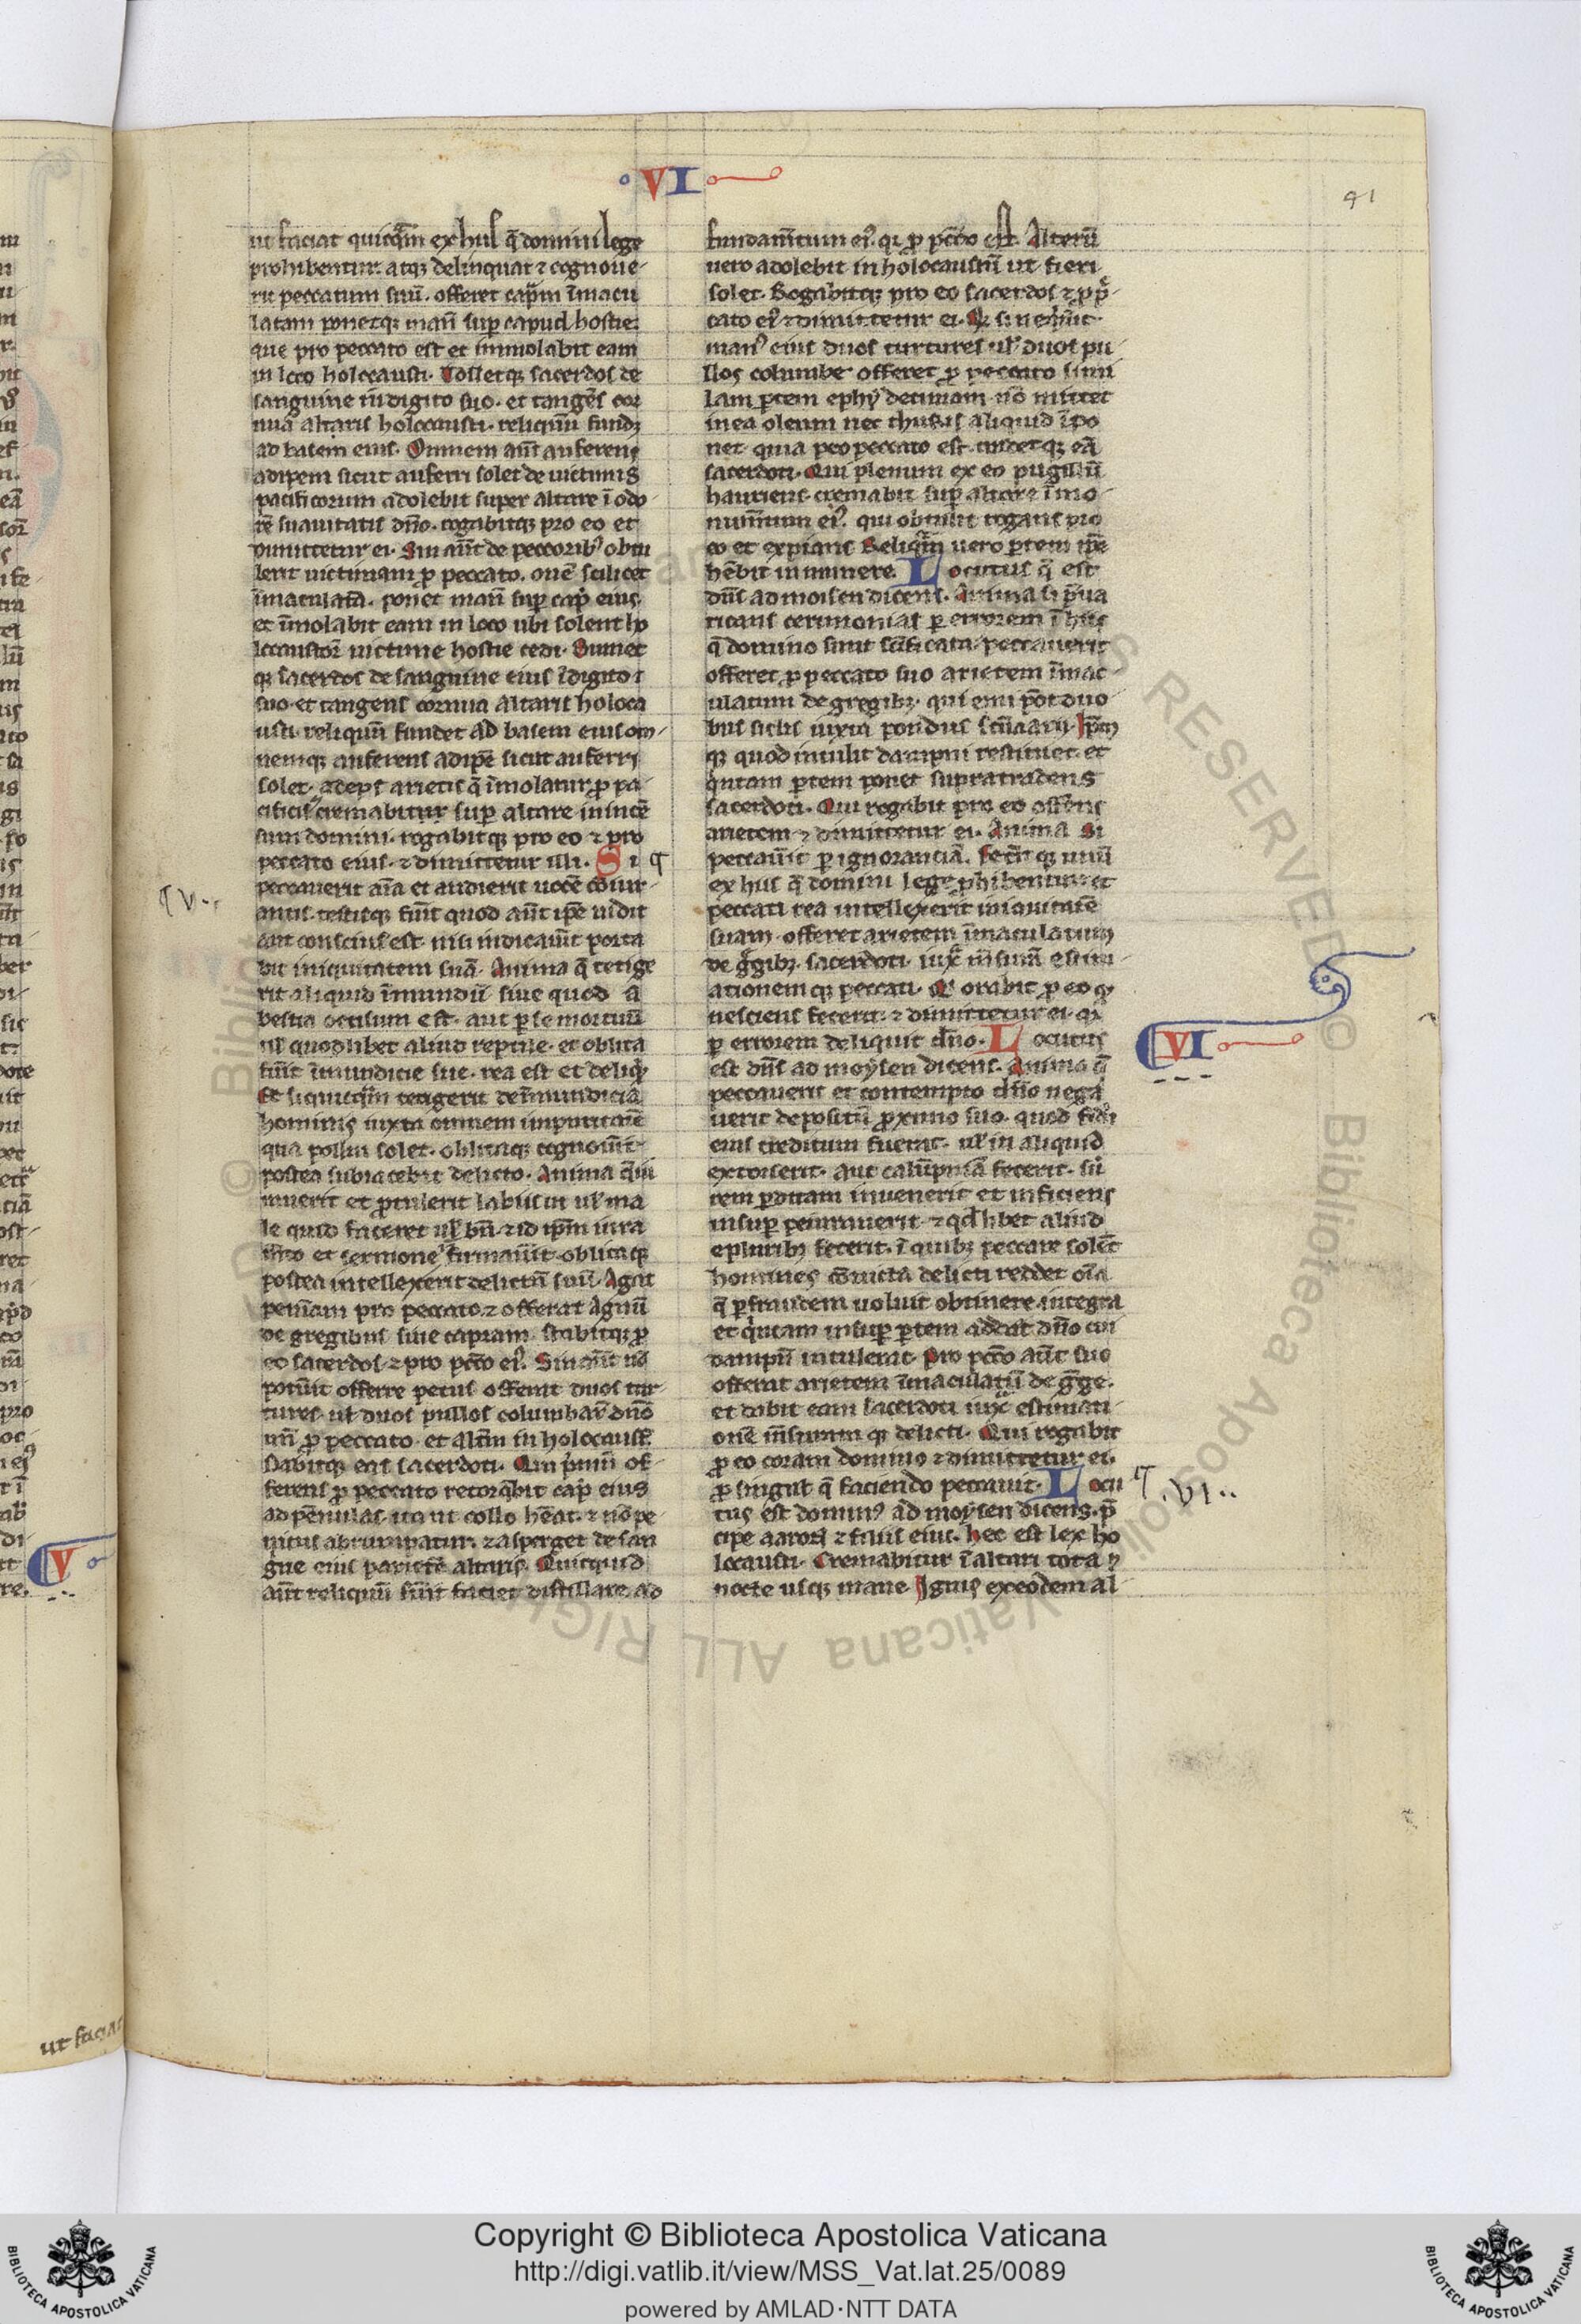 VI
41
ut faciat quicq̄m ex hiis q̄ domini lege
prohibentur atqꝫ delinquat ⁊ cognoue-
rit peccatum suū. offeret cap̄m īmacu
latam ponetqꝫ manū suꝑ capud hostie
que pro peccato est et immolabit eam
in loco holocausti. Tolletqꝫ sacerdos de
sanguine in digito suo. et tangēs cor
nua altaris holocausti. reliquū fundꝫ
ad basem eius. Omnem aūt auferens
adipem sicut auferri solet de uictimis
pacificorum adolebit super altare ī odo-
rē suauitatis dn̄o. rogabitqꝫ pro eo et
dimittetur ei. Sin aūt de peccoribꝰ obtu
lerit uictimam ꝓ peccato. ouē scilicet
īmaculatā. ponet manū suꝑ cap̄ eius
et īmolabit eam in loco ubi solent ho
locaustoꝝ uictime hostie cedi. Sumet
qꝫ sacerdos de sanguine eius ī digito
suo et tangens cornua altaris holoca
usti. reliquū fundet ad basem eius om-
nemqꝫ auferens adipē sicut auferri
solet. adeps arietis q̄ īmolatur ꝓ pa-
cificis cremabitur suꝑ altare in incē
sum domini. rogabitqꝫ pro eo ⁊ pro
peccato eius. ⁊ dimittetur illi. Si
peccauerit aīa et audierit uocē iur-
antis. testisqꝫ fuīt quod aūt ip̄e uidit
aut conscius est. nisi indicauīt porta
bit iniquitatem suā. Anima q̄ tetige
rit aliquid īmundū siue quod a
bestia occisum est. aut ꝑ se mortuū
ul̄ quodlibet aliud reptile. et oblita
fuīt īmundicie sue. rea est et deliq̄t
Et si quicq̄m tetigerit de īmundicia
hominis iuxta omnem impuritatē
qua pollui solet. oblitaqꝫ cognouīt
postea subiacebit delicto. Anima q̄ iu
rauerit et ꝓtulerit labiis suis ut ul̄ ma
le quid faceret ul̄ bn̄. ⁊ id ip̄m iura
mēto et sermone firmauīt oblitaqꝫ
postea intellexerit delictū suū. Agat
penitentiam pro peccato. ⁊ offerat agnū
de gregibus siue capram. rabitqꝫ ꝓ
eo sacerdos. ⁊ pro pctō eiꝰ. Sin aūt nō
potuīt offerre pecus offerat duos tur-
tures. ul̄ duos pullos columbaꝝ dn̄o
unū ꝓ peccato. et altīm in holocaustū.
Dabitqꝫ eas sacerdoti. Qui p̄mū of-
ferens ꝓ peccato retorq̄bit cap̄ eius
ad pēnulas. ita ut collo hēat. ⁊ nō pe-
nitus abrumpatur. ⁊ asperget de san
gue eius parietē altaris. Quicquid
aūt reliquū fuīt faciet distillare. ad
V.
fundam̄tum eiꝰ. qꝛ ꝓ pctō est. Alterū
uero adolebit in holocaustū ut fieri
solet. Rogabitqꝫ pro eo sacerdos ⁊ ꝓ p̄
cato eiꝰ ⁊ dimittetur ei. si nō
manꝰ eius duos turtures. ul̄ duos pu-
llos columbe offeret ꝓ peccato simi
lam ꝑtem ephy decimam. nō mittet
in ea oleum nec thuris aliquid īpo
net. quia pro peccato est. tradetqꝫ eā
sacerdoti. Qui plenum ex eo pugillū
hauriens. cremabit suꝑ altare ī mo-
num̄tum eiꝰ. qui obtulit rogans pro
eo et expians. Reliq̄m uero ꝑtem ip̄e
hēbit in munere. Locutus q̄ est
dn̄s ad moisen dicens. Anima si p̄ua
ricans cerimonias ꝑ errorem ī hiis
q̄ domino sunt scīficata peccauerit
offeret ꝓ peccato suo arietem īmac-
ulatum de gregibꝫ. qui emi pōt duo
bus siclis iuxta pondus scūarii. Ip̄m
qꝫ quod intulit dampni restituet. et
q̄ntam ꝑtem ponet supra tradens
sacerdoti. Qui rogabit pro eo offēns
arietem ⁊ dimittetur ei. Anima si
peccauīt ꝑ ignoranciā. fecītqꝫ unū
ex hiis q̄ domini lege ꝓhibentur. et
peccati rea intellexerit iniquitatē
suam. offeret arietem īmaculatum
de gregibꝫ. sacerdoti. iux̄ m̄surā estim-
ationemqꝫ peccati. Qi orabit ꝓ eo qꝛ
nesciens fecerit. ⁊ dimittetur ei. qꝛ
ꝑ errorem deliquit dn̄o. Locutus
est dn̄s ad moysen dicens. Anima q̄
peccauerit et contempto dn̄o nega
uerit depositū ꝓximo suo. quod fidei
eius creditum fuerat. ul̄ in aliquid
extorserit. aut calūpniā fecerit. siue
rem ꝑditam inuenerit et inficiens
insuꝑ peiurauerit. ⁊ qd̄libet aliud
e pluribꝫ fecerit. ī quibꝫ peccare solēt
homines conuicta delicti reddet oīa
q̄ ꝑ fraudem uoluit obtinere. integra
et q̄ntam insuꝑ ꝑtem addat dn̄o cui
dampn̄ intulerat. Pro pctō aūt suo
offerat arietem īmaculatū de g̅ge.
et dabit eam sacerdoti iux̄ estimati-
onē m̄suram qꝫ delicti. Qui rogabit
ꝓ eo coram domino ⁊ dimittetur ei.
ꝓ singul̄ q̄ faciendo peccauit. Locu
tus est dominꝰ ad moysen dicens. p̄
cipe aaron ⁊ filiis eius. hec est lex ho
locausti. Cremabitur ī altari tota
nocte usqꝫ mane. Ignis ex eodem al-
VI
.VI..
V
ut faciat
Copyright © Biblioteca Apostolica Vaticana
http://digi.vatlib.it/view/MSS_Vat.lat.25/0089
powered by AMLAD·NTT DATA
BIBLIOTECA APOSTOLICA VATICANA
BIBLIOTECA APOSTOLICA VATICANA